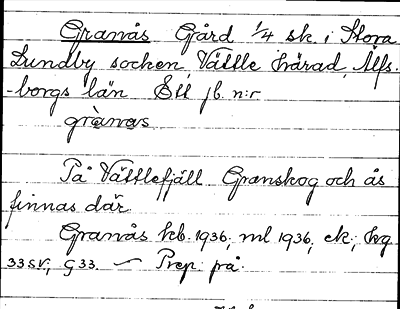 Granås Gård 1/4 sk. i Stora
Lundby socken, Vättle härad, Älfs-
-borgs län Ett jb. n:r
grànas
På Vättlefjäll. Granskog och ås
finnas där.
Granås kb. 1936, ml 1936, ek; hg
33 SV; G 33. — Prep. på.